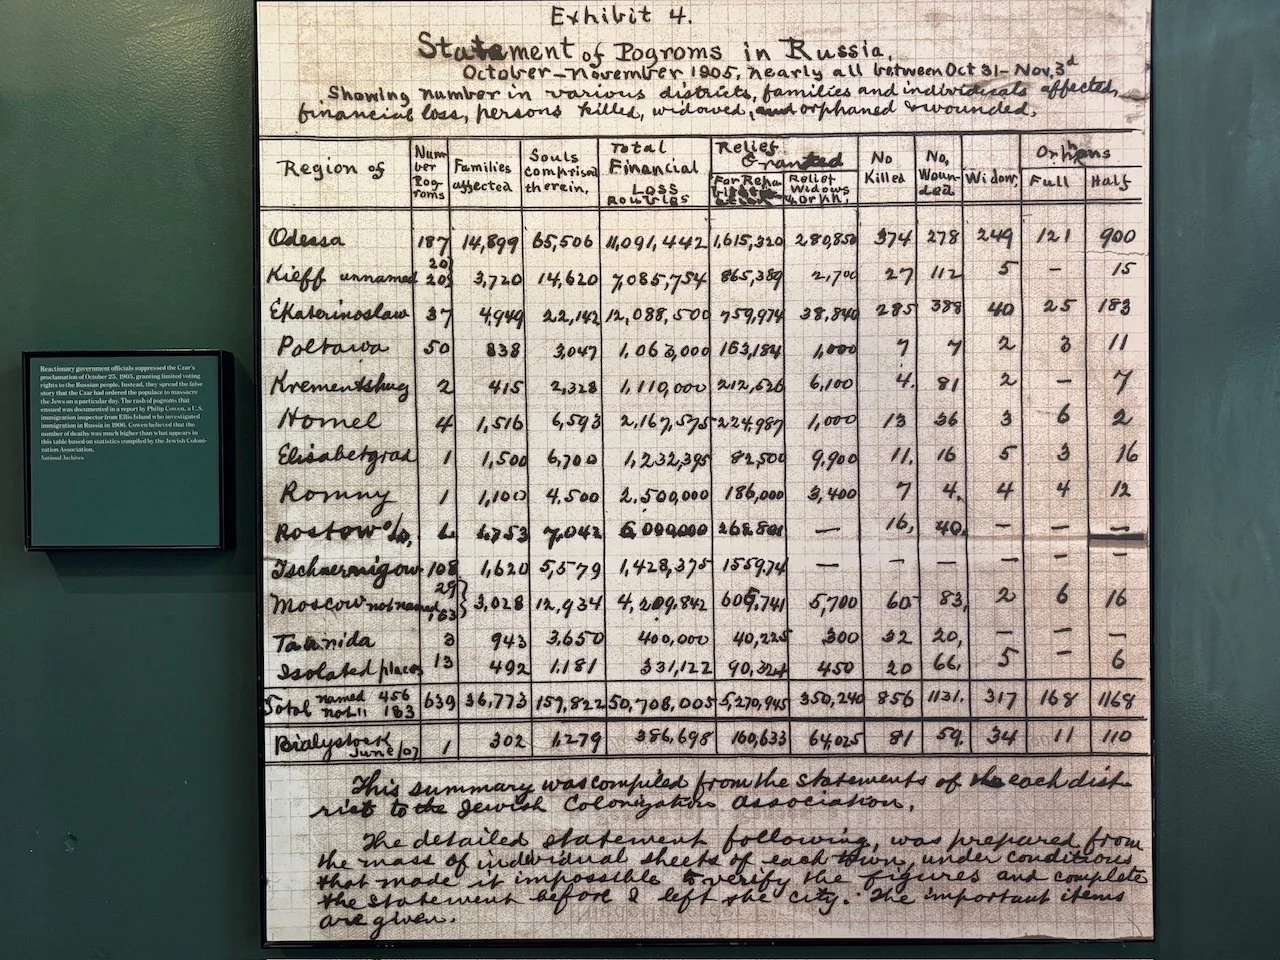 Exhibit 4.
Statement of Pogroms in Russia.
October-November 1905, nearly all between Oct 31- Nov. 3d
Showing number in various districts, families and individuals affected,
financial loss, persons killed, widowed, orphaned & wounded.
Region of | Number Pogroms | Families affected | Souls comprised therein. | Total Financial Loss Roubles | Relief Granted | No Killed | No. Wounded | Widow. | Orphans
Relief Widows & Orph. | Full | Half
Odessa 187 14,899 65,506 11,091,442 1,615,320 280,850 374 278 249 121 900
Kieff unnamed 20 20 3,720 14,620 7,085,754 865,389 2,700 27 112 5 — 15
Ekaterinoslaw 37 4,949 22,142 12,088,500 759,974 38,840 285 388 40 25 183
Poltawa 50 838 3,047 1,063,000 163,184 1,000 7 7 2 3 11
Krementshug 2 415 2,328 1,110,000 212,626 6,100 4. 81 2 — 7
Homel 4 1,516 6,593 2,167,575 224,987 1,000 13 36 3 6 2
Elisabetgrad 1 1,500 6,700 1,232,395 82,500 9,900 11. 16 5 3 16
Romny 1 1,100 4,500 2,500,000 186,000 3,400 7 4. 4 4 12
Rostow 7,042 6,000,000 — 16, 40, — — —
Tschernigow 108 1,620 5,579 1,428,375 155974 — — — — — —
Moscow not named 29 163 3,028 12,934 4,209,842 5,700 60 83, 2 6 16
Taurida 3 943 3,650 400,000 40,225 300 32 20, — — —
Isolated places 13 492 1,181 331,122 90,324 450 20 66. 5 — 6
Total named 456 not 11 183 639 36,773 157,822 50,708,005 5,270,945 350,240 856 1131. 317 168 1168
Bialystock June/07 1 302 1,279 386,698 160,633 64,025 81 59. 34 11 110
This summary was compiled from the statements of each dist-
rict to the Jewish Colonization Association.
The detailed statement following, was prepared from
the mass of individual sheets of each town, under conditions
that made it impossible to verify the figures and complete
the statement before I left the city. The important items
are given.
Reactionary government officials suppressed the Czar's
proclamation of October 25, 1905, granting limited voting
rights to the Russian people. Instead, they spread the false
story that the Czar had ordered the populace to massacre
the Jews on a particular day. The rash of pogroms that
ensued was documented in a report by Philip Cowen, a U.S.
immigration inspector from Ellis Island who investigated
immigration in Russia in 1906. Cowen believed that the
number of deaths was much higher than what appears in
this table based on statistics compiled by the Jewish Coloni-
zation Association.
National Archives